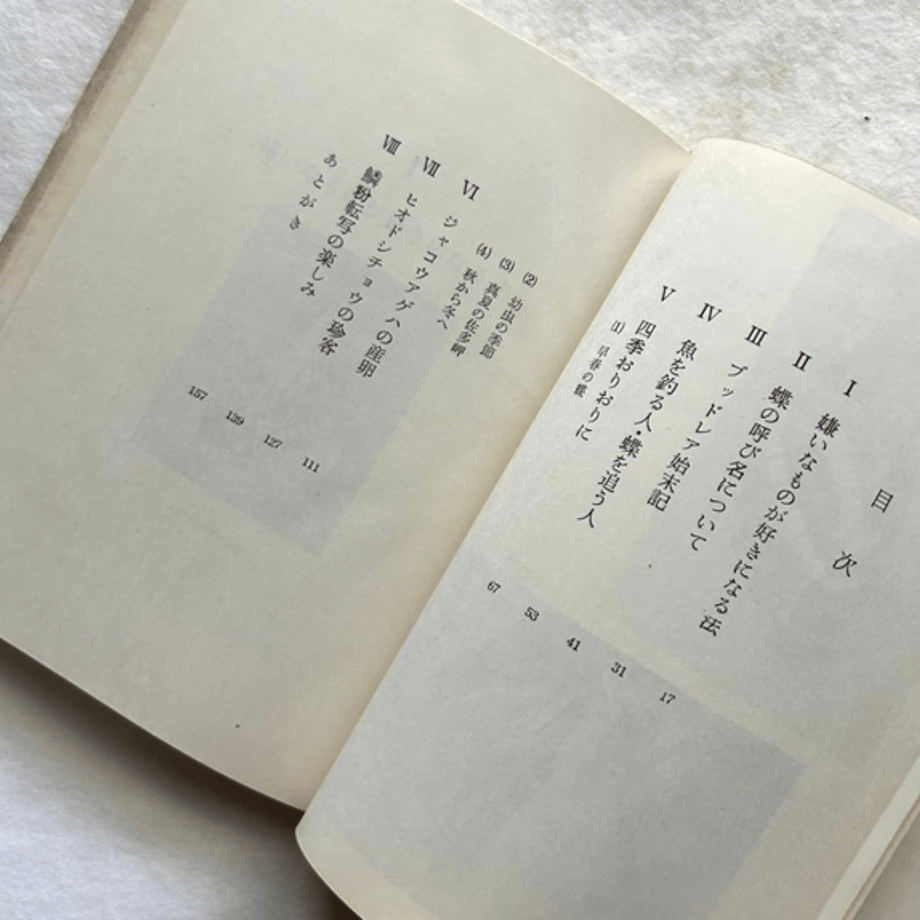 目次
Ⅰ 嫌いなものが好きになる法 17
Ⅱ 蝶の呼び名について 31
Ⅲ ブッドレア始末記 41
Ⅳ 魚を釣る人・蝶を追う人 53
Ⅴ 四季おりおりに 67
(1) 早春の蝶
(2) 幼虫の季節
(3) 真夏の佐多岬
(4) 秋から冬へ
Ⅵ ジャコウアゲハの産卵 111
Ⅶ ヒオドシチョウの珍客 127
Ⅷ 鱗粉転写の楽しみ 139
あとがき 157